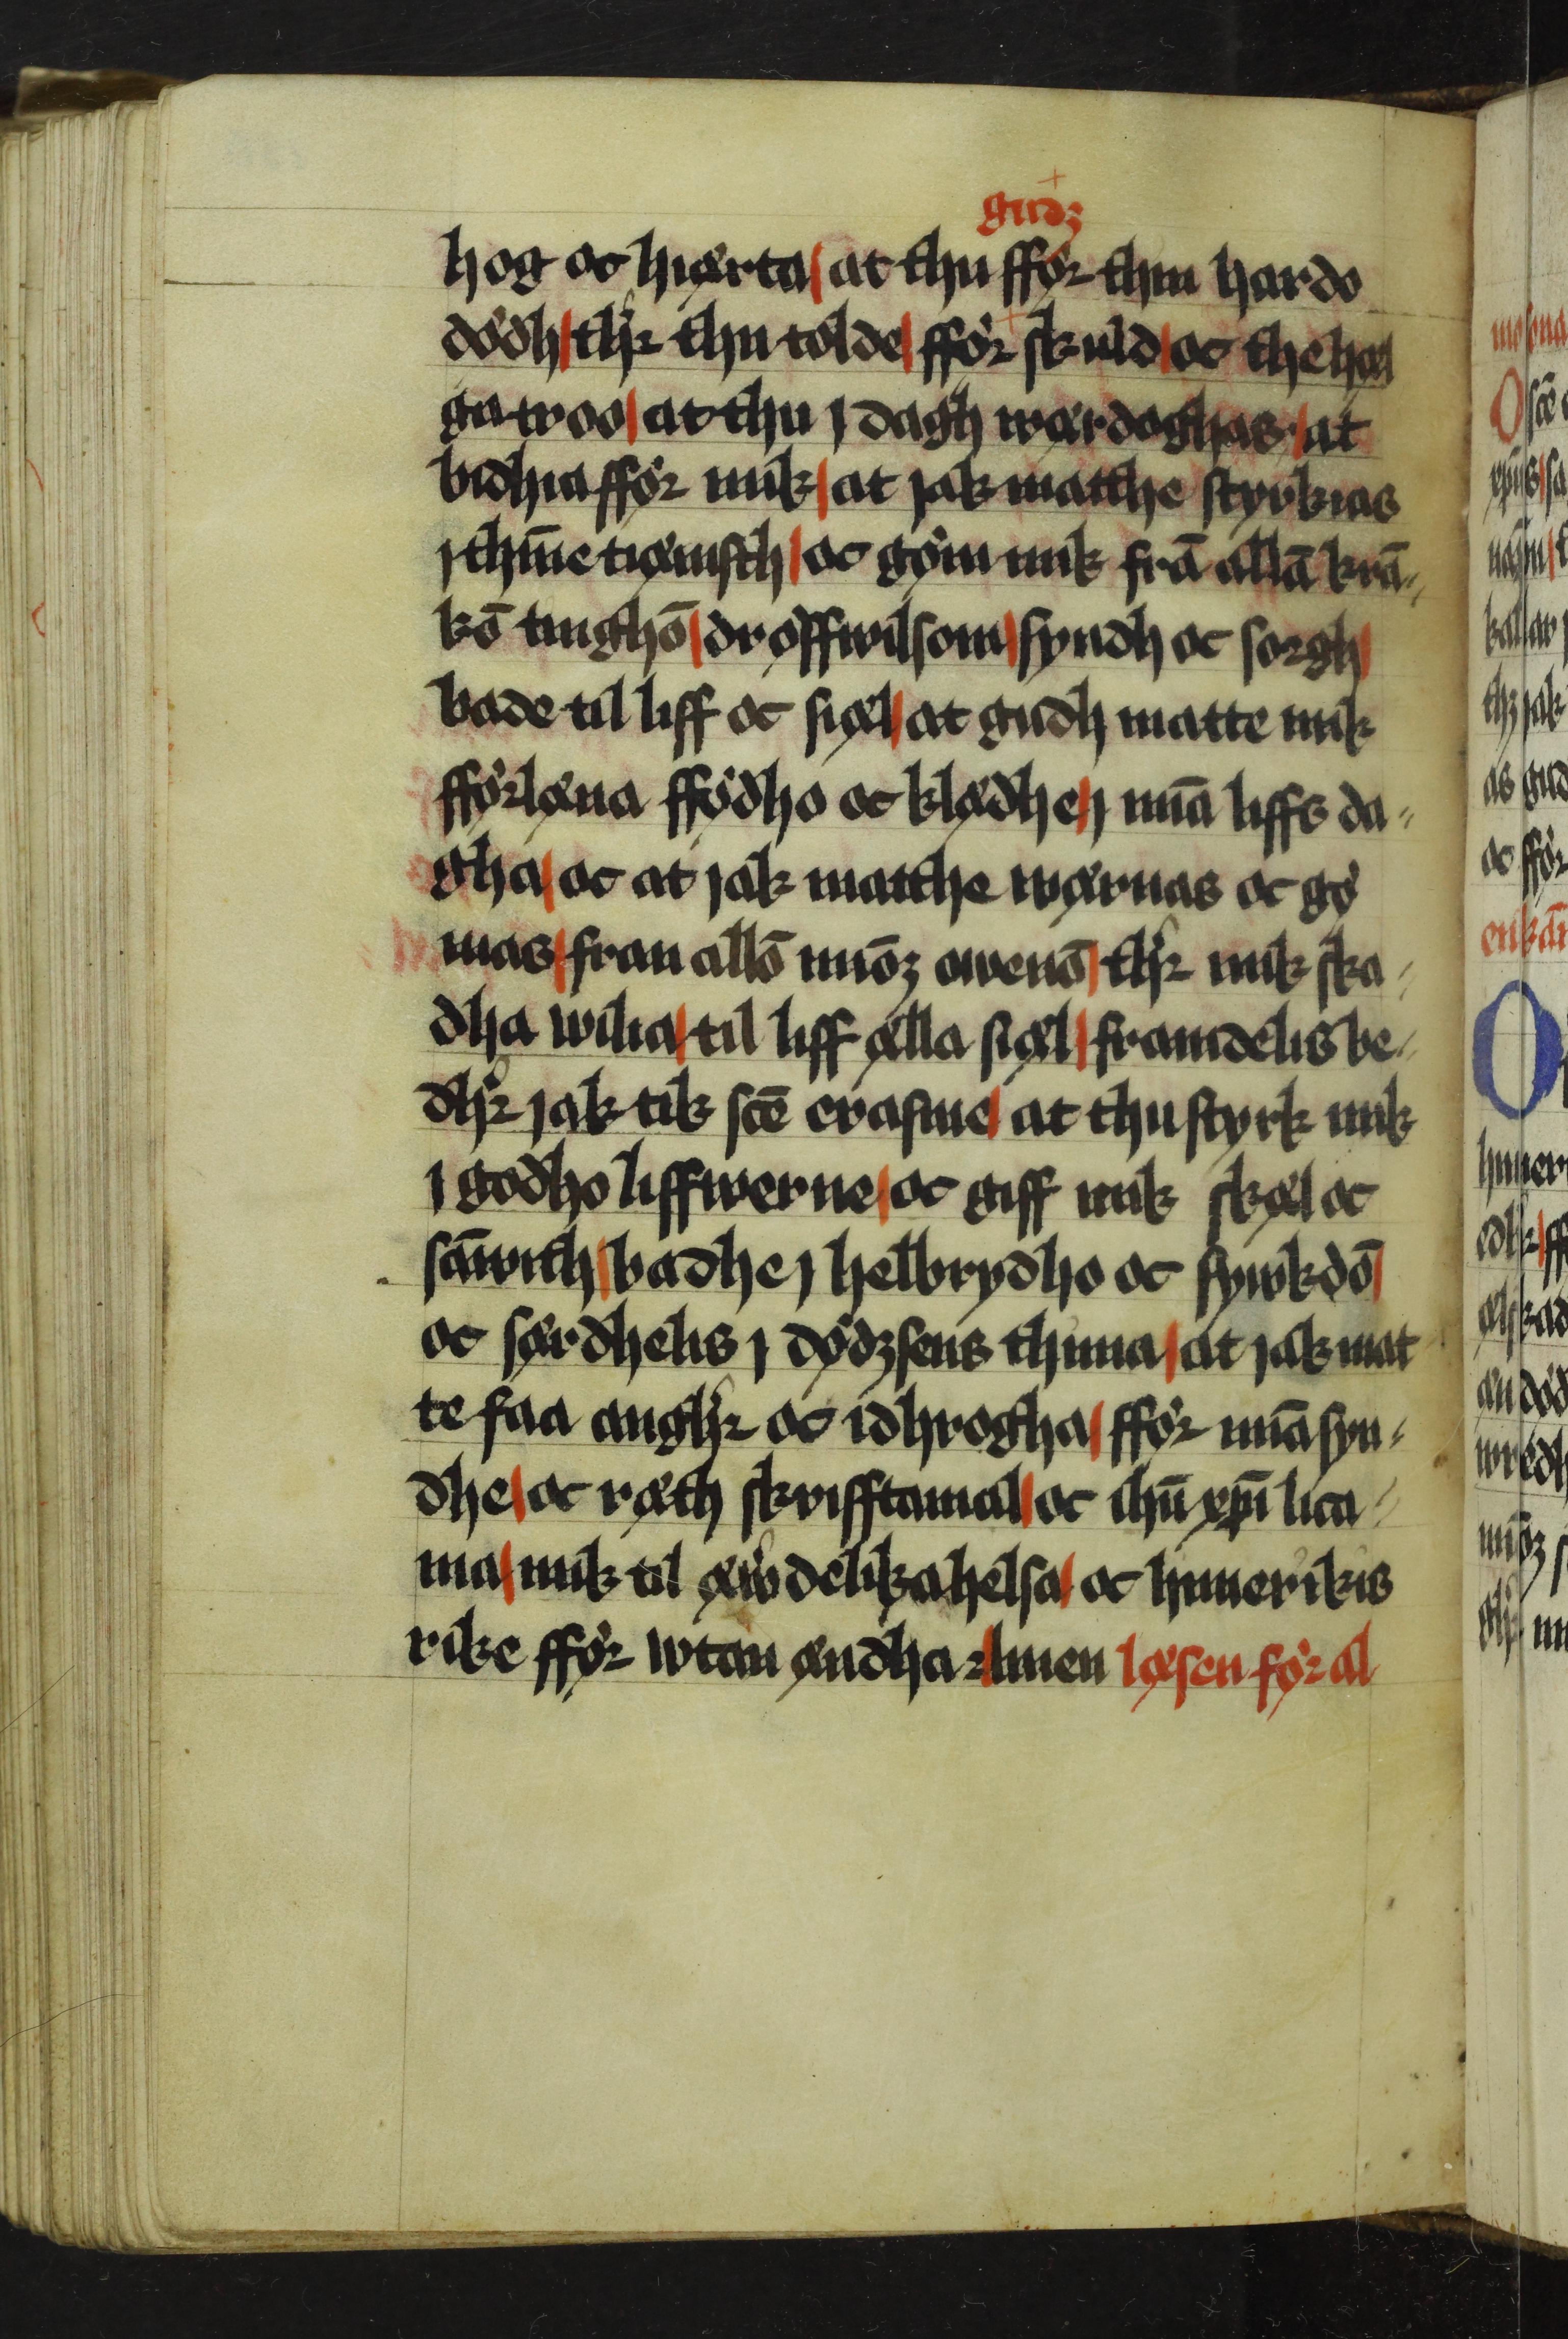 gudz
hog oc hiærta / at thu fför thin hardo
dödh / thr̍ thu tolde / ffor skuld / oc the hæl
ga troo / at thu j dagh wærdoghas / at
bidhia ffor mik / at jak matthe styrkias
j thīne tiænisth / oc göm mik frā allā krā-
kō tinghō / dröffwilsom / syndh oc sorgh /
bade til liff oc siæl / at gudh matte mik
fförlæna ffödho oc klædhe / j mīa liffs da-
gha / oc at jak matthe wærnas oc gö
mas / fran allō mīōz owenō / thr̍ mik ska-
dha wilia / til liff ælla siæl / framdelis be-
dhr̍ jak tik scē erasme / at thu styrk mik
j godho liffwerne / oc giff mik skæl oc
sāwith / badhe j helbrydho oc sywkdō /
oc særdhelis j dödzsens thima / at jak mat
te faa anghr̍ oc idhrogha / ffor mīa syn-
dhe / oc ræth skrifftamal / oc ihū xpī lica-
ma / mik til æwdelika helsa / oc himerikis
rike ffor wtan ændha amen læsen for al